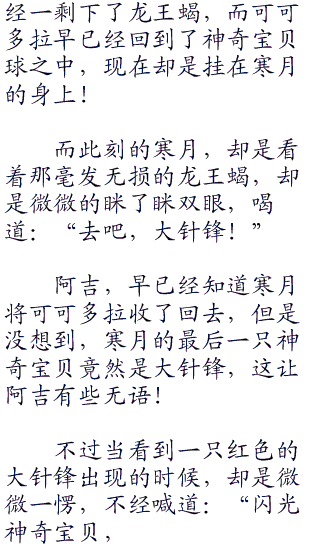 经一剩下了龙王蝎，而可可
多拉早已经回到了神奇宝贝
球之中，现在却是挂在寒月
的身上！
而此刻的寒月，却是看
着那毫发无损的龙王蝎，却
是微微的眯了眯双眼，喝
道：“去吧，大针锋！”
阿吉，早已经知道寒月
将可可多拉收了回去，但是
没想到，寒月的最后一只神
奇宝贝竟然是大针锋，这让
阿吉有些无语！
不过当看到一只红色的
大针锋出现的时候，却是微
微一愣，不经喊道：“闪光
神奇宝贝，